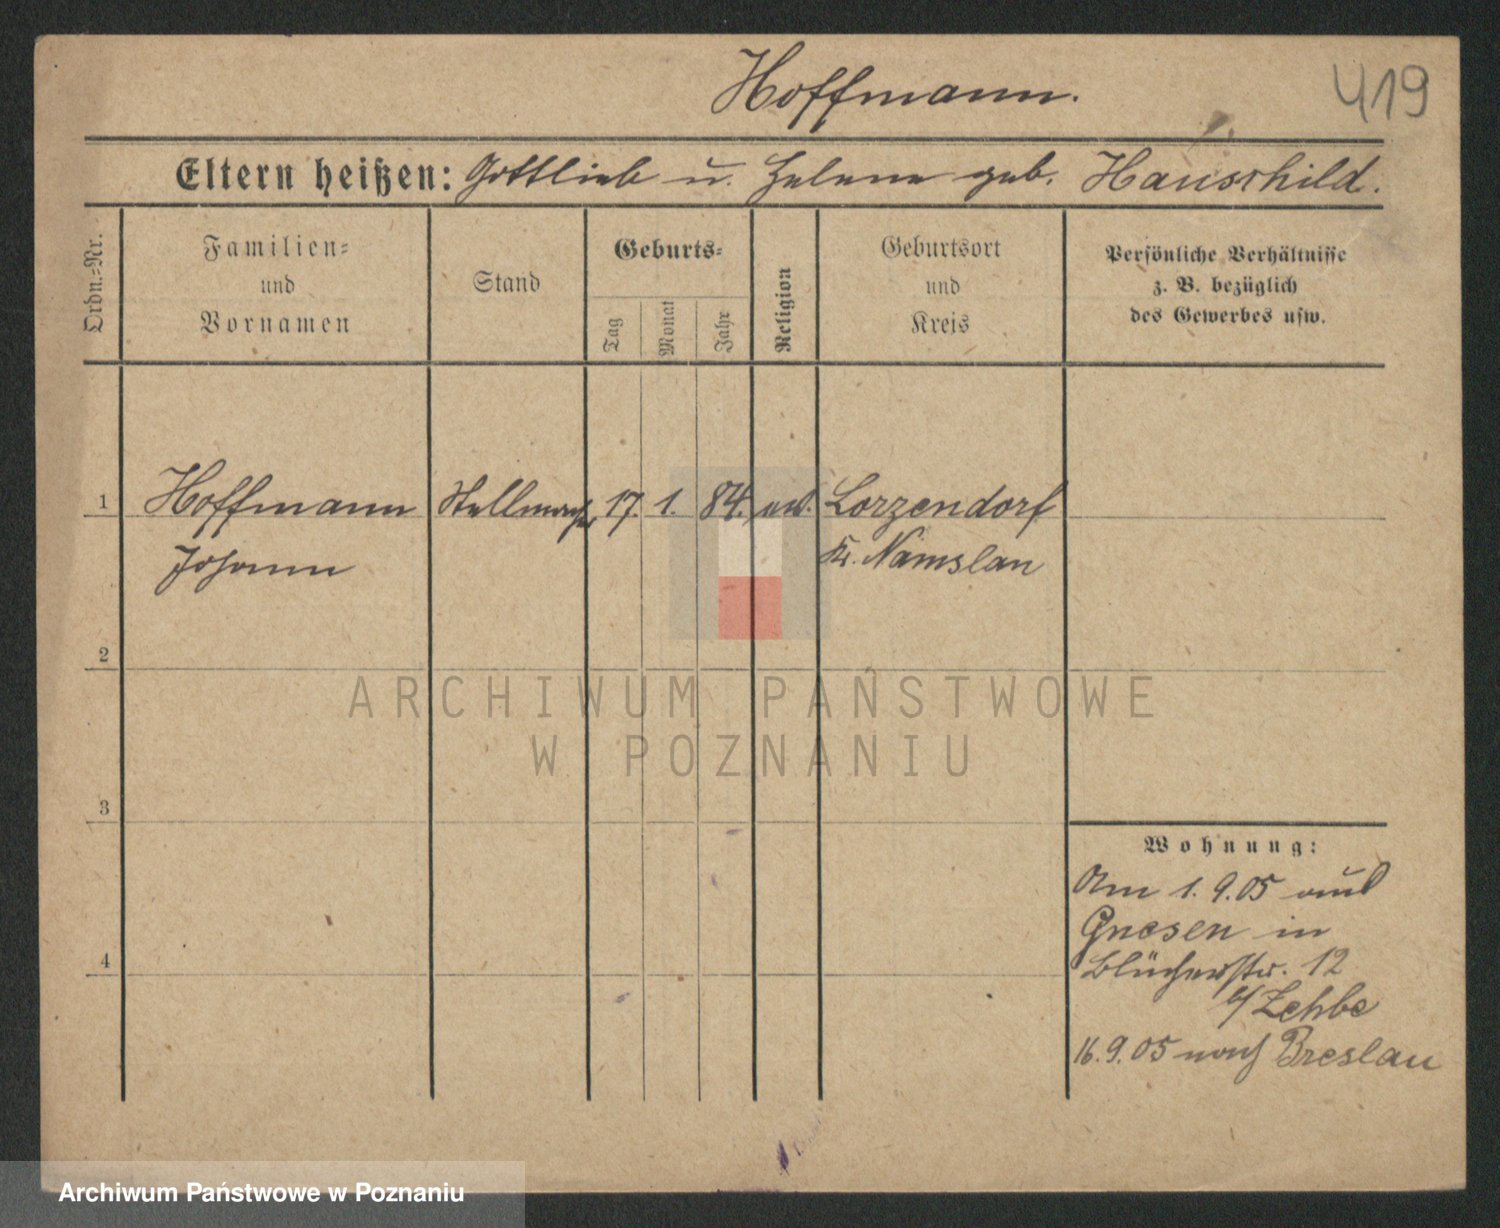 Hoffmann.
419
Eltern heißen: Gottlieb u. Helene geb. Hauschild.
Ordn.-Nr.
Familien-
und
Vornamen
Stand
Geburts-
Tag
Monat
Jahr
Religion
Geburtsort
und
Kreis
Persönliche Verhältnisse
z. B. bezüglich
des Gewerbes usw.
1 Hoffmann Stellmacher 17. 1. 84. ev. Lorzendorf
Johann Kr. Namslau
2
ARCHIWUM PAŃSTWOWE
W POZNANIU
3
Wohnung:
Am 1.9.05 aus
Gnesen in
4
Blücherstr. 12
b/Zehbe
16.9.05 nach Breslau
Archiwum Państwowe w Poznaniu